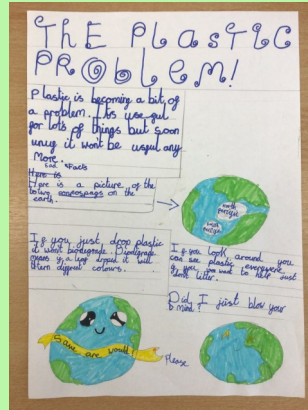 ThE PLasTIC
PRobLem!
Plastic is becoming a bit of
a problem. Its use ful
for lots of things but soon
it wont be useful any
More.
Facts
Here is
Here is a picture of the
on the
earth.
north
south
If you just drop plastic
it wont biodegrade.
means if a leaf droped it will
turn different colours.
If you look around you
can see plastic everywere
if you want to help just
dont litter.
Did I just blow your
mind?
Save are would!
Please